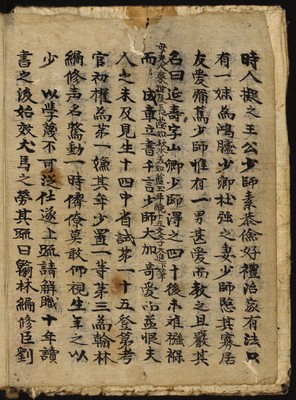 時人擬之王公少師素恭儉好禮治家有法只
有一妹為鴻臚少卿杜強之妻少師愍其寡居
友愛彌篤少師惟有一男甚愛而教之且嚴其
名曰延壽字山卿少師得之四十後未離襁褓
母夫人棄世及長
而成章立書千言少師大加奇愛而益恨夫
人之未及見生十四中省試第一十五登第考
官初擢為第一嫌其年少置一等第三為翰林
編修声名驚動一時儕僚莫敢仰視生
少以學蔑不可泛仕遂上疏請解職十年讀
書之後始效犬馬之勞其疏曰翰林編修臣劉